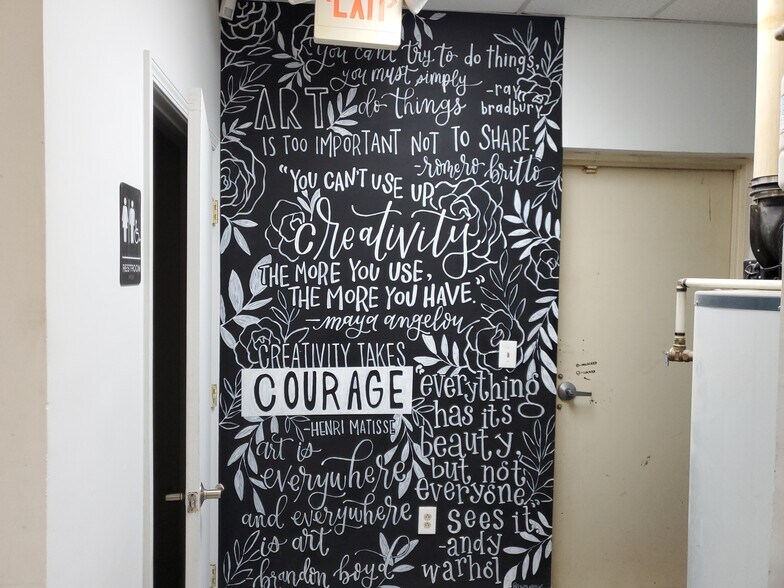 EXIT
"you can't try to do things,
you must simply
do things
-ray
bradbury
ART
IS TOO IMPORTANT NOT TO SHARE.
-romero britto
"YOU CAN'T USE UP
creativity
THE MORE YOU USE,
THE MORE YOU HAVE."
-maya angelou
CREATIVITY TAKES
COURAGE
-HENRI MATISSE
"everything
has its
beauty,
but not
everyone
sees it
-andy
warhol
art is
everywhere
and everywhere
is art
brandon boyd
RESTROOM